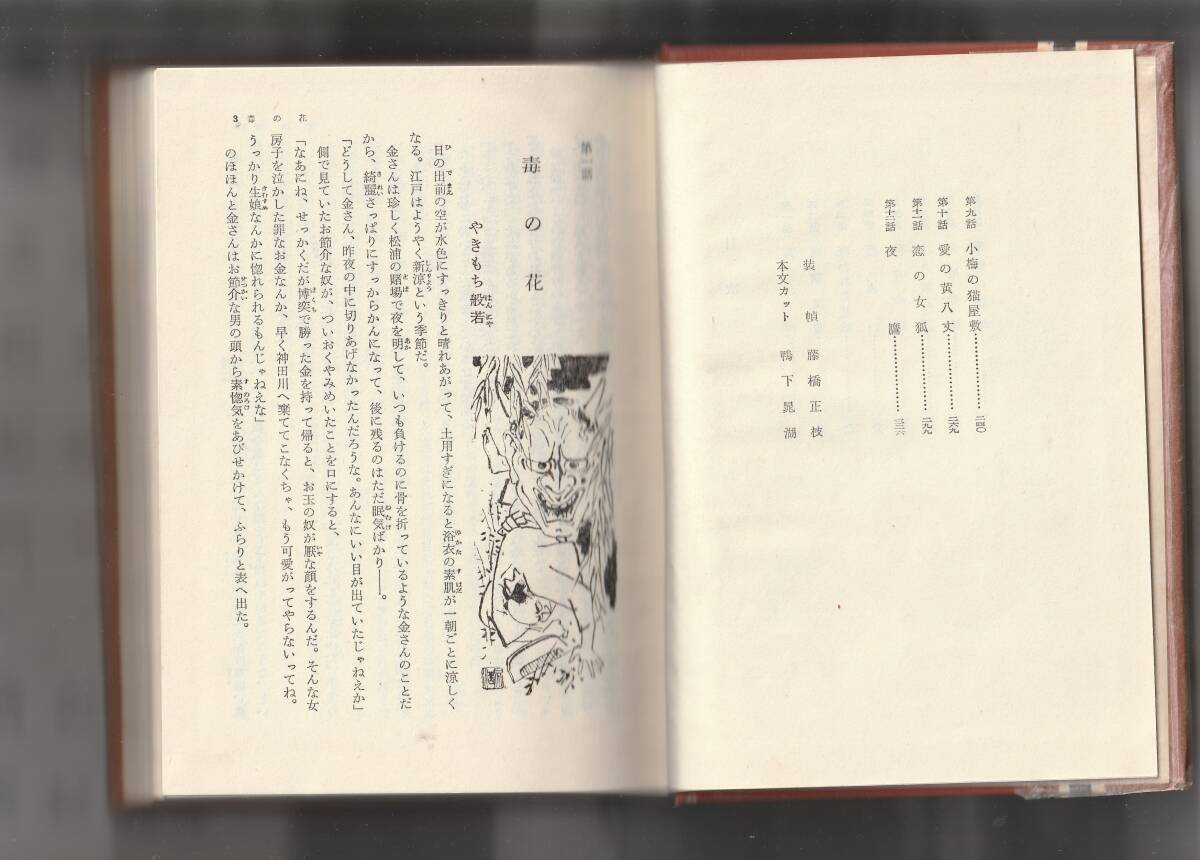 第九話 小梅の猫屋敷…………二四〇
第十話 愛の黄八丈…………二六九
第十一話 恋の女狐…………二九九
第十二話 夜鷹…………三三六
装幀 藤橋正枝
本文カット 鴨下晁湖
第一話
毒の花
やきもち般若
日の出前の空が水色にすっきりと晴れあがって、土用すぎになると浴衣の素肌が一朝ごとに涼しく
なる。江戸はようやく新涼という季節だ。
金さんは珍しく松浦の賭場で夜を明して、いつも負けるのに骨を折っているような金さんのことだ
から、綺麗さっぱりにすっからかんになって、後に残るのはただ眠気ばかり――。
「どうして金さん、昨夜の中に切りあげなかったんだろうな。あんなにいい目が出ていたじゃねえか」
側で見ていたお節介な奴が、ついおくやみめいたことを口にすると、
「なあにね、せっかくだが博奕で勝った金を持って帰ると、お玉の奴が厭な顔をするんだ。そんな女
房子を泣かした罪なお金なんか、早く神田川へ棄ててこなくちゃ、もう可愛がってやらないってね。
うっかり生娘なんかに惚れられるもんじゃねえな」
のほほんと金さんはお節介な男の頭から素惚気をあびせかけて、ふらりと表へ出た。
3 毒の花